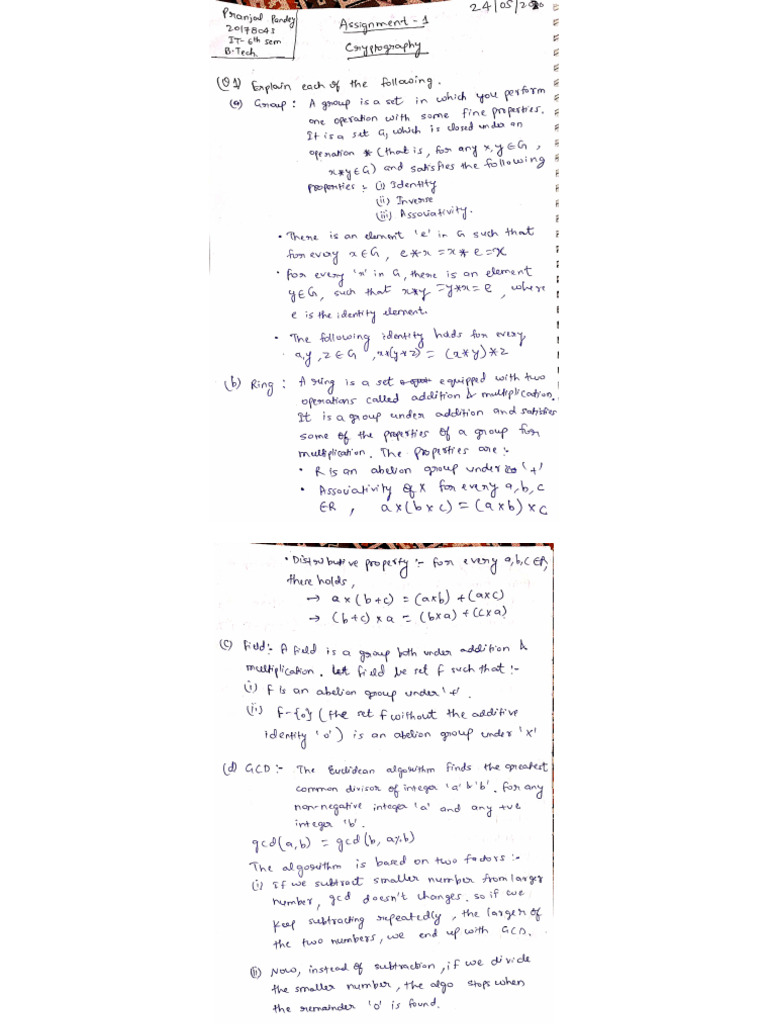 Pranjal Pandey
20178043
IT-6th sem
B.Tech.
Assignment-1
Cryptography
24/05/2020
(Q1) Explain each of the following.
(a) Group: A group is a set in which you perform
one operation with some fine properties.
It is a set G, which is closed under an
operation * (that is, for any x,y ∈ G,
x*y ∈ G) and satisfies the following
properties :- (i) Identity
(ii) Inverse
(iii) Associativity.
• There is an element 'e' in G such that
for every x ∈ G, e*x = x*e = x
• For every 'x' in G, there is an element
y ∈ G, such that x*y = y*x = e, where
e is the identity element.
• The following identity holds for every
x,y,z ∈ G, x*(y*z) = (x*y)*z
(b) Ring: A ring is a set equipped with two
operations called addition & multiplication.
It is a group under addition and satisfies
some of the properties of a group for
multiplication. The properties are :-
• R is an abelian group under '+'
• Associativity of x for every a,b,c
∈R, a×(b×c) = (a×b)×c
• Distributive property :- for every a,b,c ∈R,
there holds,
→ a×(b+c) = (a×b)+(a×c)
→ (b+c)×a = (b×a)+(c×a)
(c) Field:- A field is a group both under addition &
multiplication. Let field be set F such that :-
(i) F is an abelian group under '+'.
(ii) F-{0} (the set F without the additive
identity '0') is an abelian group under 'x'
(d) GCD :- The Euclidean algorithm finds the greatest
common divisor of integer 'a' & 'b'. For any
non-negative integer 'a' and any +ve
integer 'b'.
gcd(a,b) = gcd(b, a%b)
The algorithm is based on two factors :-
(i) If we subtract smaller number from larger
number, gcd doesn't changes. so if we
keep subtracting repeatedly, the larger of
the two numbers, we end up with GCD.
(ii) Now, instead of subtraction, if we divide
the smaller number, the algo stops when
the remainder '0' is found.